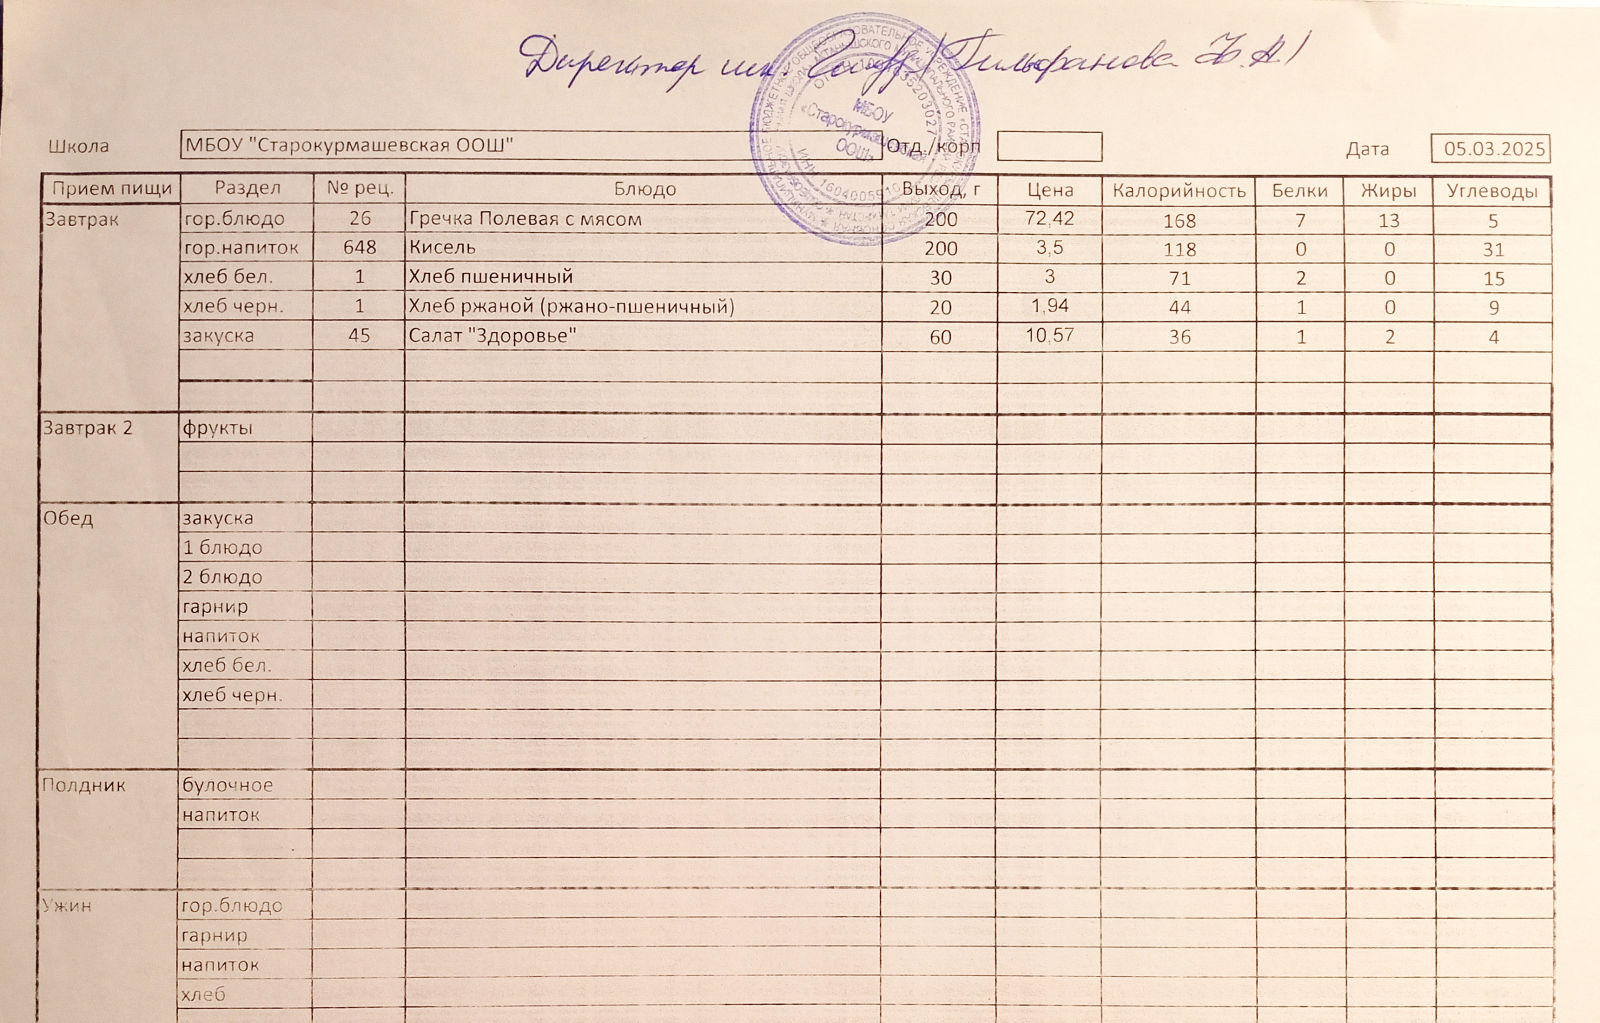 Директор шк. /Гильфанова
МБОУ
«Старокурмашевская
ООШ»
Школа МБОУ "Старокурмашевская ООШ" Отд./корп Дата 05.03.2025
Прием пищи Раздел № рец. Блюдо Выход, г Цена Калорийность Белки Жиры Углеводы
Завтрак гор.блюдо 26 Гречка Полевая с мясом 200 72,42 168 7 13 5
гор.напиток 648 Кисель 200 3,5 118 0 0 31
хлеб бел. 1 Хлеб пшеничный 30 3 71 2 0 15
хлеб черн. 1 Хлеб ржаной (ржано-пшеничный) 20 1,94 44 1 0 9
закуска 45 Салат "Здоровье" 60 10,57 36 1 2 4
Завтрак 2 фрукты
Обед закуска
1 блюдо
2 блюдо
гарнир
напиток
хлеб бел.
хлеб черн.
Полдник булочное
напиток
Ужин гор.блюдо
гарнир
напиток
хлеб